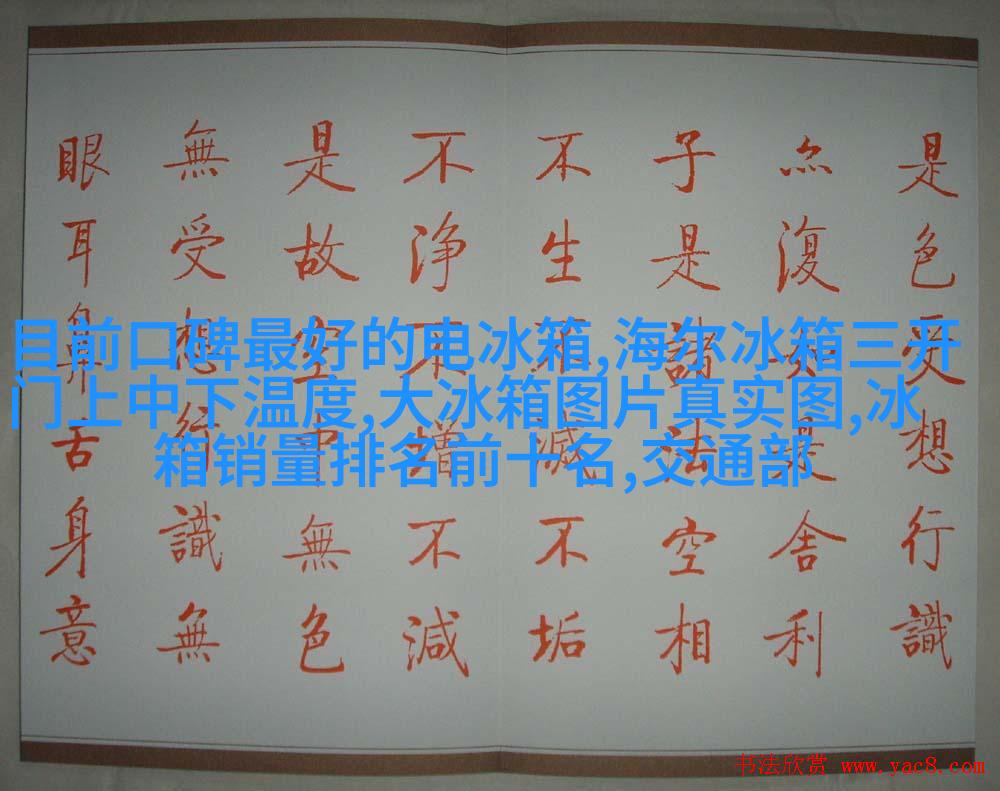 是色受想行識
亦復如是舍利
子是諸法空相
不生不滅不垢
不浄不增不減
是故空中無色
無受想行識無
眼耳鼻舌身意
目前口碑最好的电冰箱,海尔冰箱三开
门上中下温度,大冰箱图片真实图,冰
箱销量排名前十名,交通部
书法欣赏 www.yac8.com